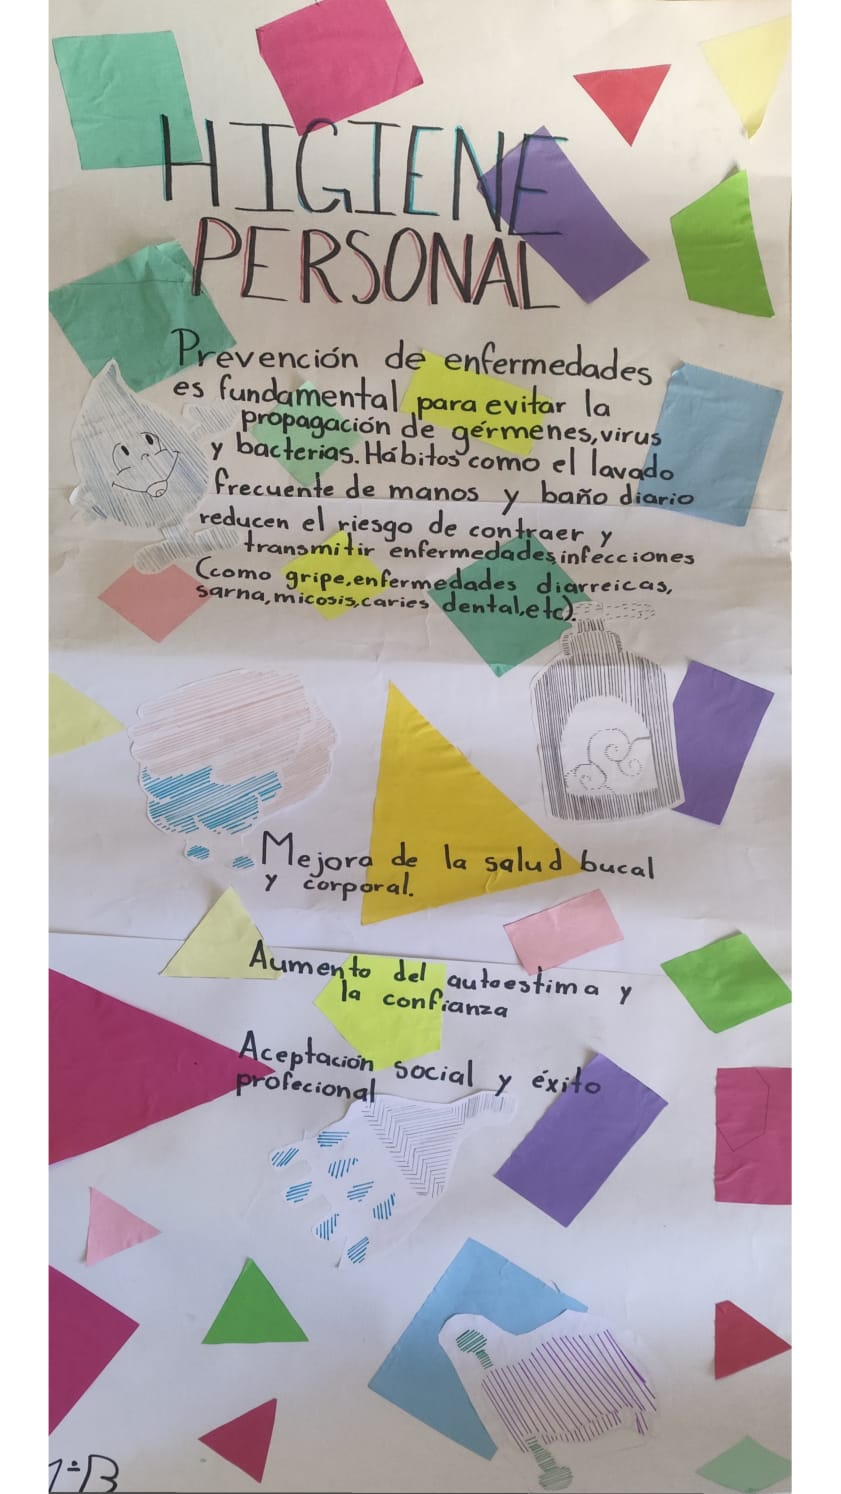 HIGIENE
PERSONAL
Prevención de enfermedades
es fundamental para evitar la
propagación de gérmenes, virus
y bacterias. Hábitos como el lavado
frecuente de manos y baño diario
reducen el riesgo de contraer y
transmitir enfermedades, infecciones
(como gripe, enfermedades diarreicas,
sarna, micosis, caries dental, etc).
Mejora de la salud bucal
y corporal.
Aumento del autoestima y
la confianza
Aceptación social y éxito
profecional
1÷B